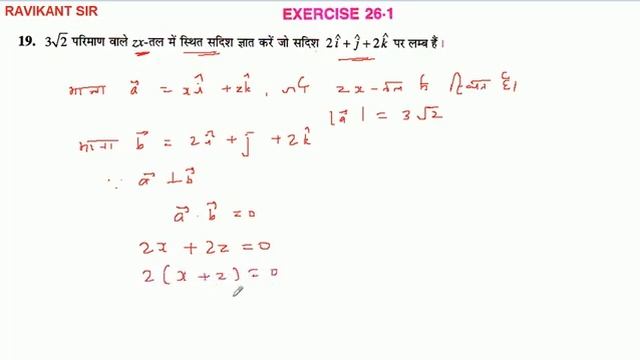 RAVIKANT SIR
EXERCISE 26-1
19. 3√2 परिमाण वाले zx-तल में स्थित सदिश ज्ञात करें जो सदिश 2î + ĵ + 2k̂ पर लम्ब हैं।
माना a⃗ = xî + zk̂, जो zx-तल में स्थित है।
|a⃗| = 3√2
माना b⃗ = 2î + ĵ + 2k̂
∵ a⃗ ⊥ b⃗
a⃗ . b⃗ = 0
2x + 2z = 0
2(x + z) = 0